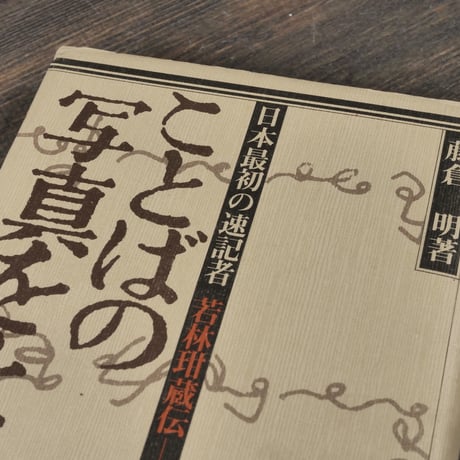 藤倉 明著
日本最初の速記者 若林玵蔵伝―
ことばの
写真を